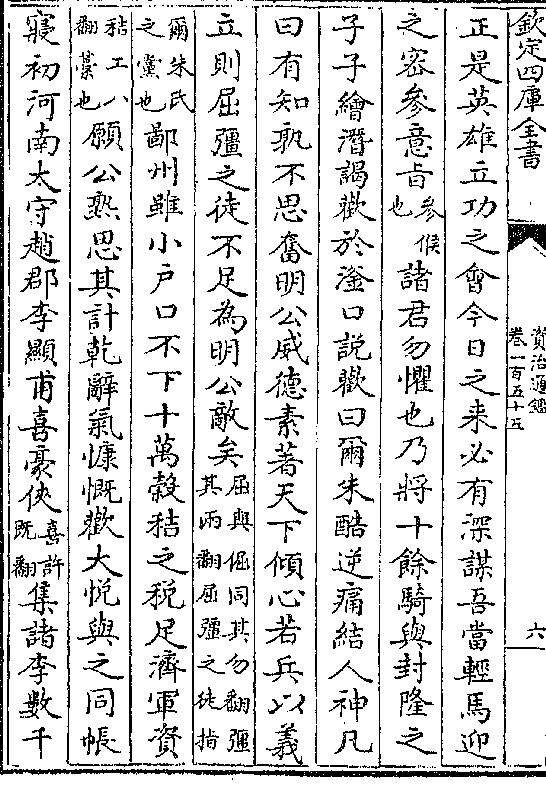 欽定四庫全書
資治通鑑
卷一百五十五
六
正是英雄立功之會今日之来必有深謀吾當輕馬迎
之宻參意㫖參候也諸君勿懼也乃將十餘騎與封隆之
子子繪潛謁歡於滏口説歡曰爾朱酷逆痛結人神凡
曰有知孰不思奮明公威德素著天下傾心若兵以義
立則屈彊之徒不足為明公敵矣屈與倔同其勿翻彊其兩翻屈彊之徒指
爾朱氏之黨也鄙州雖小戸口不下十萬榖秸之税足濟軍資
秸工八翻藁也願公熟思其計乾辭氣慷慨歡大悅與之同帳
寢初河南太守趙郡李顯甫喜豪俠喜許既翻集諸李數千